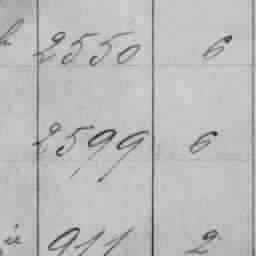 2550 6
2599 6
911 2